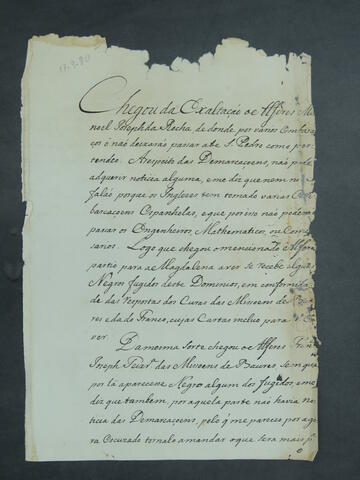 17.9.80
Chegou da Exaltação o e Alferes Ma
noel Joseph da Rocha, de donde, por varios embara
ços o não deixarão passar athe S. Pedro como per
tendeo. A respeito das Demarcaçoens, não pode
adquerir noticia alguma, e me diz que nem
falão porque os Inglezes tem tomado varias Em
barcaçoens Espanholas, e que por isso não podem
passar os Engenheiros, Mathematicos, ou Comi
sarios. Logo que chegou o mencionado Alferes
partio para a Magdalena a ver se recebe alguns
Negros fugidos deste Dominio, em conformida
de das respostas dos Curas das Missoens de
res e da do Franco, cujas Cartas incluo para
ver.
Da mesma sorte chegou o e Alferes Fran
Joseph Teixr.ª das Missoens de Baures, sem que
por la aparecese Negro algum dos fugidos, e me
diz que tambem, por aquela parte não havia no
ticia das Demarcaçoens, pelo q me pareceo por ago
ra Escuzado tornalo a mandar o que sera mais p